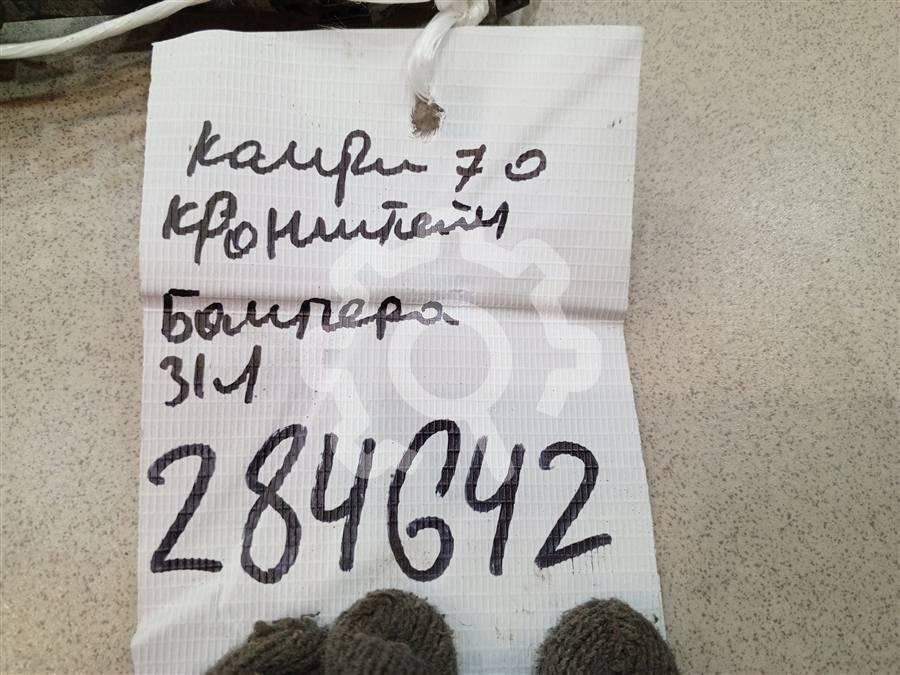 Камри 70
Кронштейн
Бампера
З/Л
284642